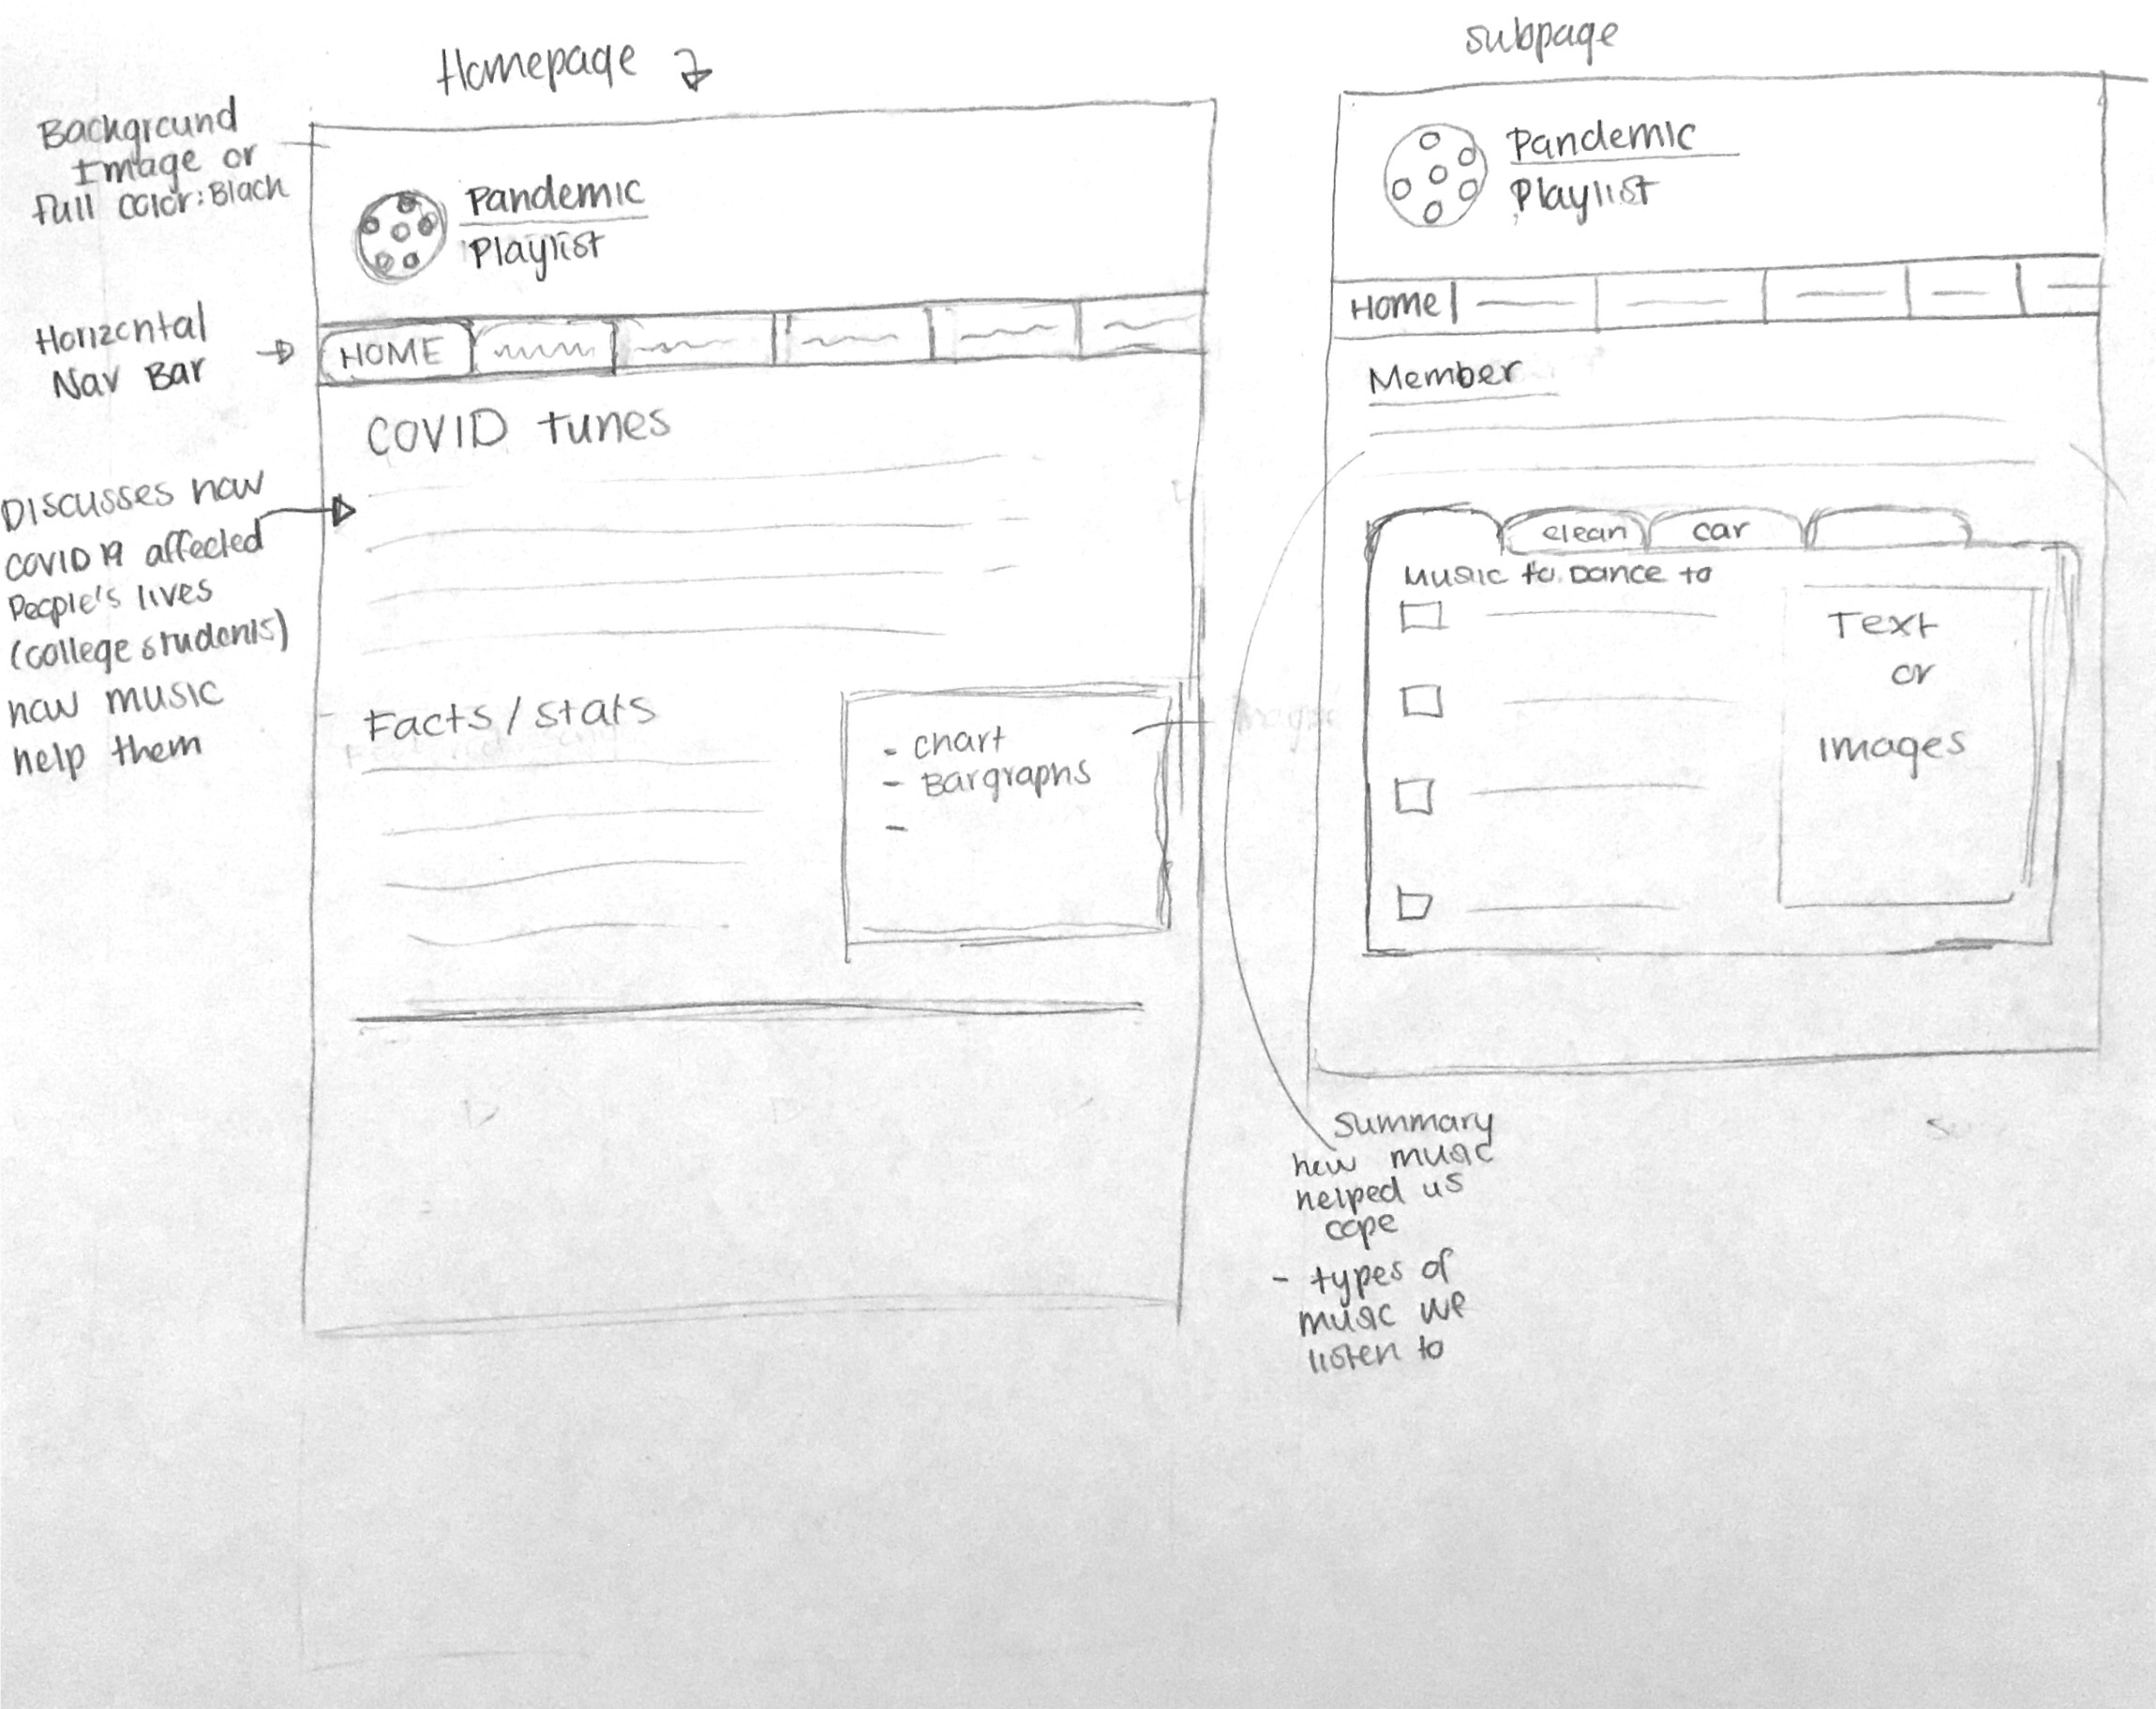 Homepage
Background
Image or
full color: Black
Pandemic
Playlist
Horizontal
Nav Bar
HOME
COVID tunes
Discusses how
COVID 19 affected
People's lives
(college students)
how music
help them
Facts/stats
- chart
- Bargraphs
-
subpage
Pandemic
Playlist
Home
Member
clean
car
Music to Dance to
Text
or
images
summary
how music
helped us
cope
- types of
music we
listen to